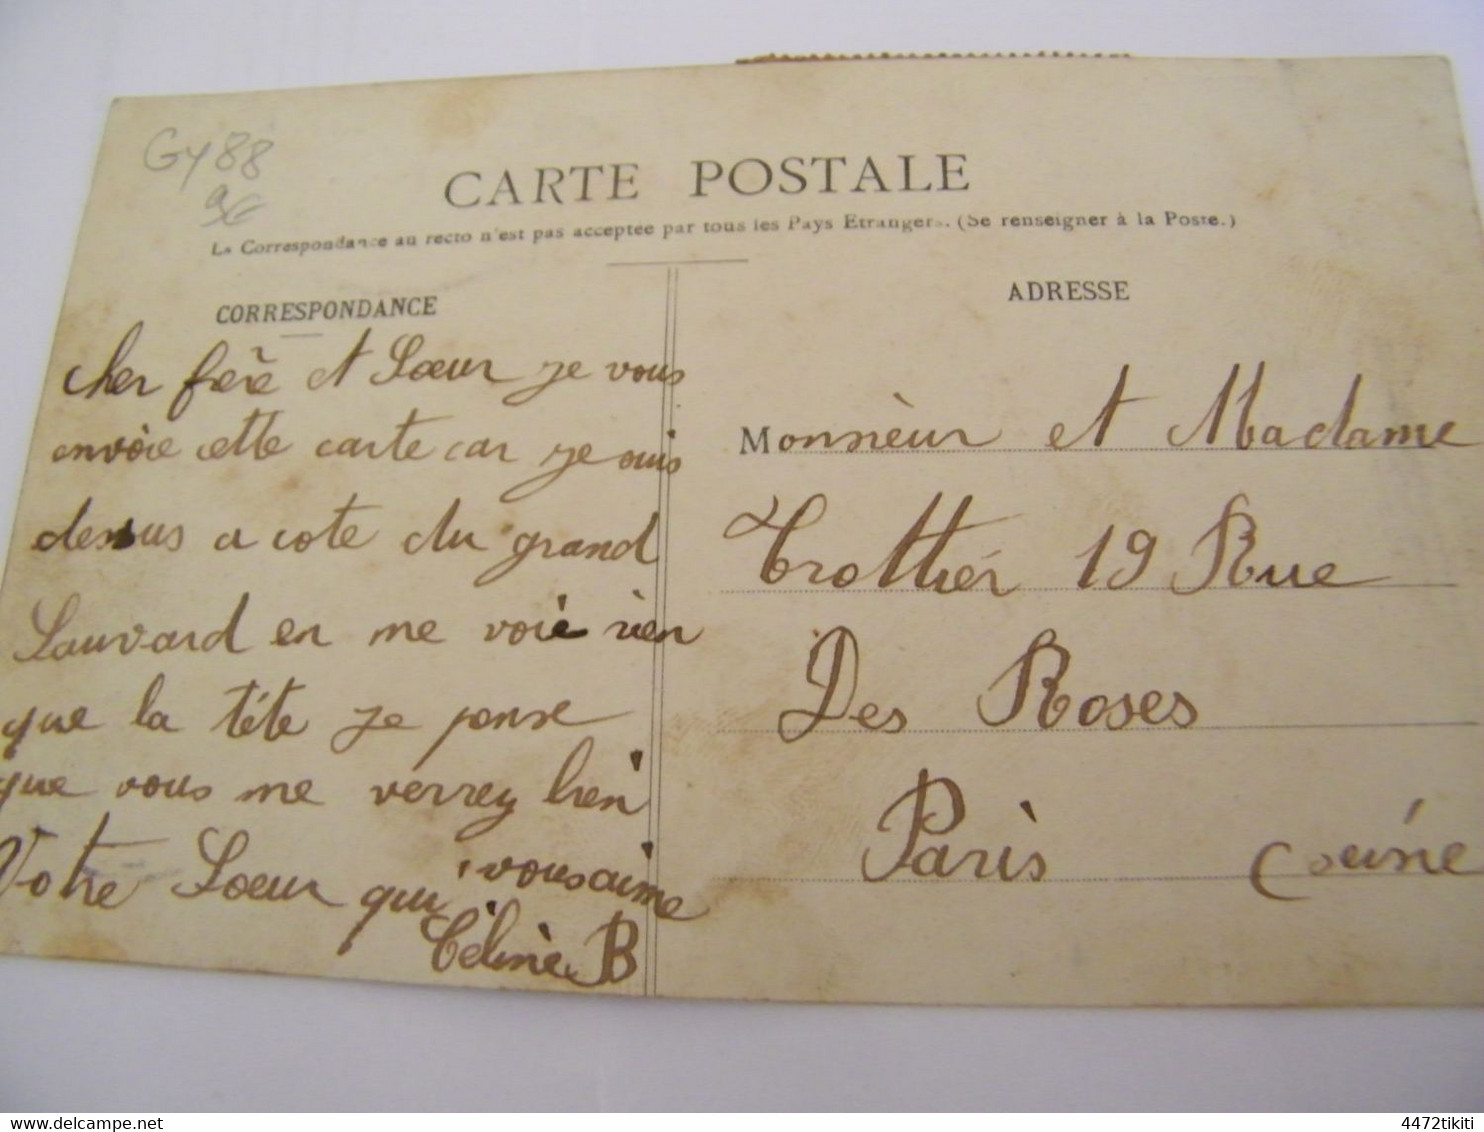 Gy88
9€
CARTE POSTALE
La Correspondance au recto n'est pas acceptée par tous les Pays Etrangers. (Se renseigner à la Poste.)
CORRESPONDANCE
cher frère et Soeur je vous
envoie cette carte car je suis
dessus a cote du grand
Sauvard en me voie rien
que la tête je pense
que vous me verrez bien
Votre Soeur qui vous aime
Céline B
ADRESSE
Monsieur et Madame
Trottier 19 Rue
Des Roses
Paris (seine
delcampe.net
4472tikiti